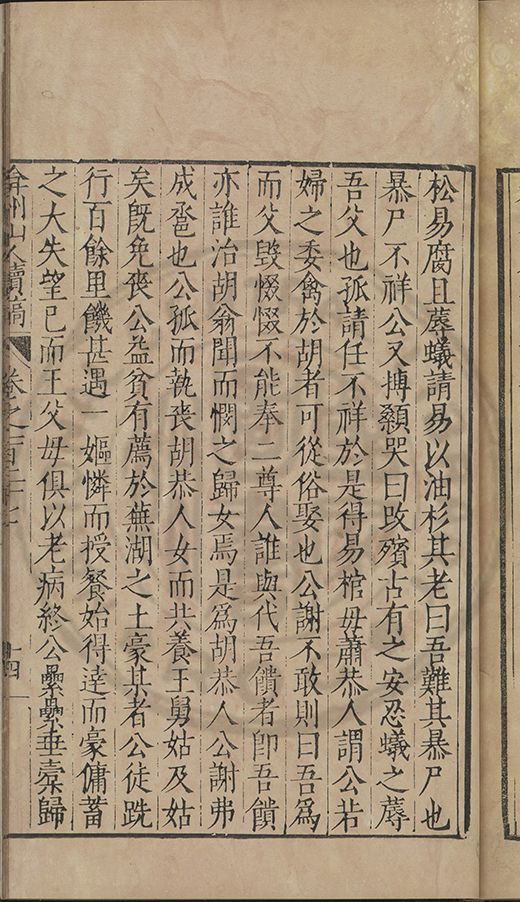 松易腐且蓐蟻請易以油杉其老曰吾難其暴尸也
暴尸不祥公又搏顙哭曰改殯古有之安忍蟻之蓐
吾父也孤請任不祥於是得易棺毋蕭恭人謂公若
婦之委禽於胡者可從俗娶也公謝不敢則曰吾爲
而父毀惙惙不能奉二尊人誰與代吾饋者卽吾饋
亦誰治胡翁聞而憫之歸女焉是爲胡恭人公謝弗
成巹也公孤而執喪胡恭人女而共養王舅姑及姑
矣旣免喪公益貧有薦於蕪湖之土豪某者公徒跣
行百餘里饑甚遇一嫗憐而授餐始得達而豪傭蓄
之大失望已而王父毋俱以老病終公纍纍垂橐歸
弇州山人續稿
卷之一百二十七
十四